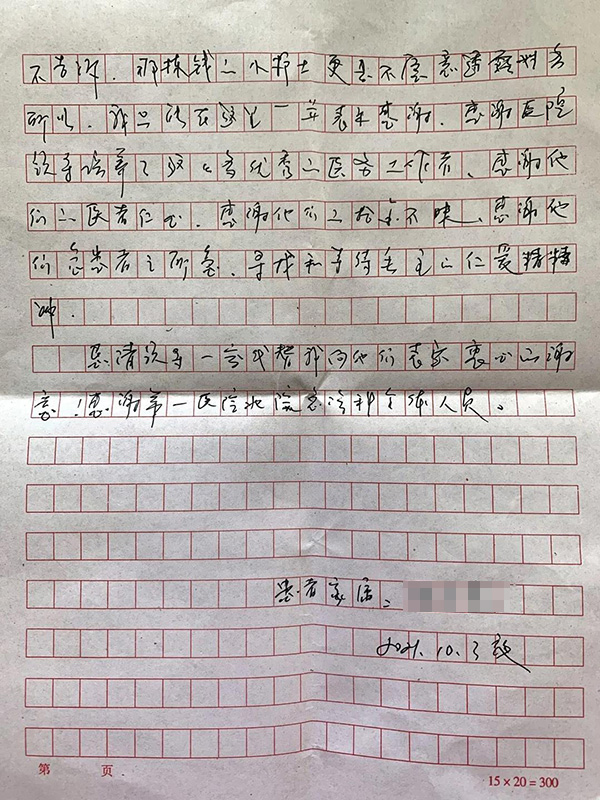 不告诉．那拣钱的小护士更是不愿意透露姓名
所以．我只能在这里一并表示感谢．感谢医院
领导培养了这么多优秀的医务工作者、感谢他
们的医者仁心．感谢他们的拾金不昧、感谢他
们急患者之所急、寻找和等待失主的仁爱精
神．
恳请领导一定代替我向他们表示衷心的谢
意！感谢第一医院北院急诊科全体人员。
患者家属：
2021.10.3敬
第 页
15×20=300